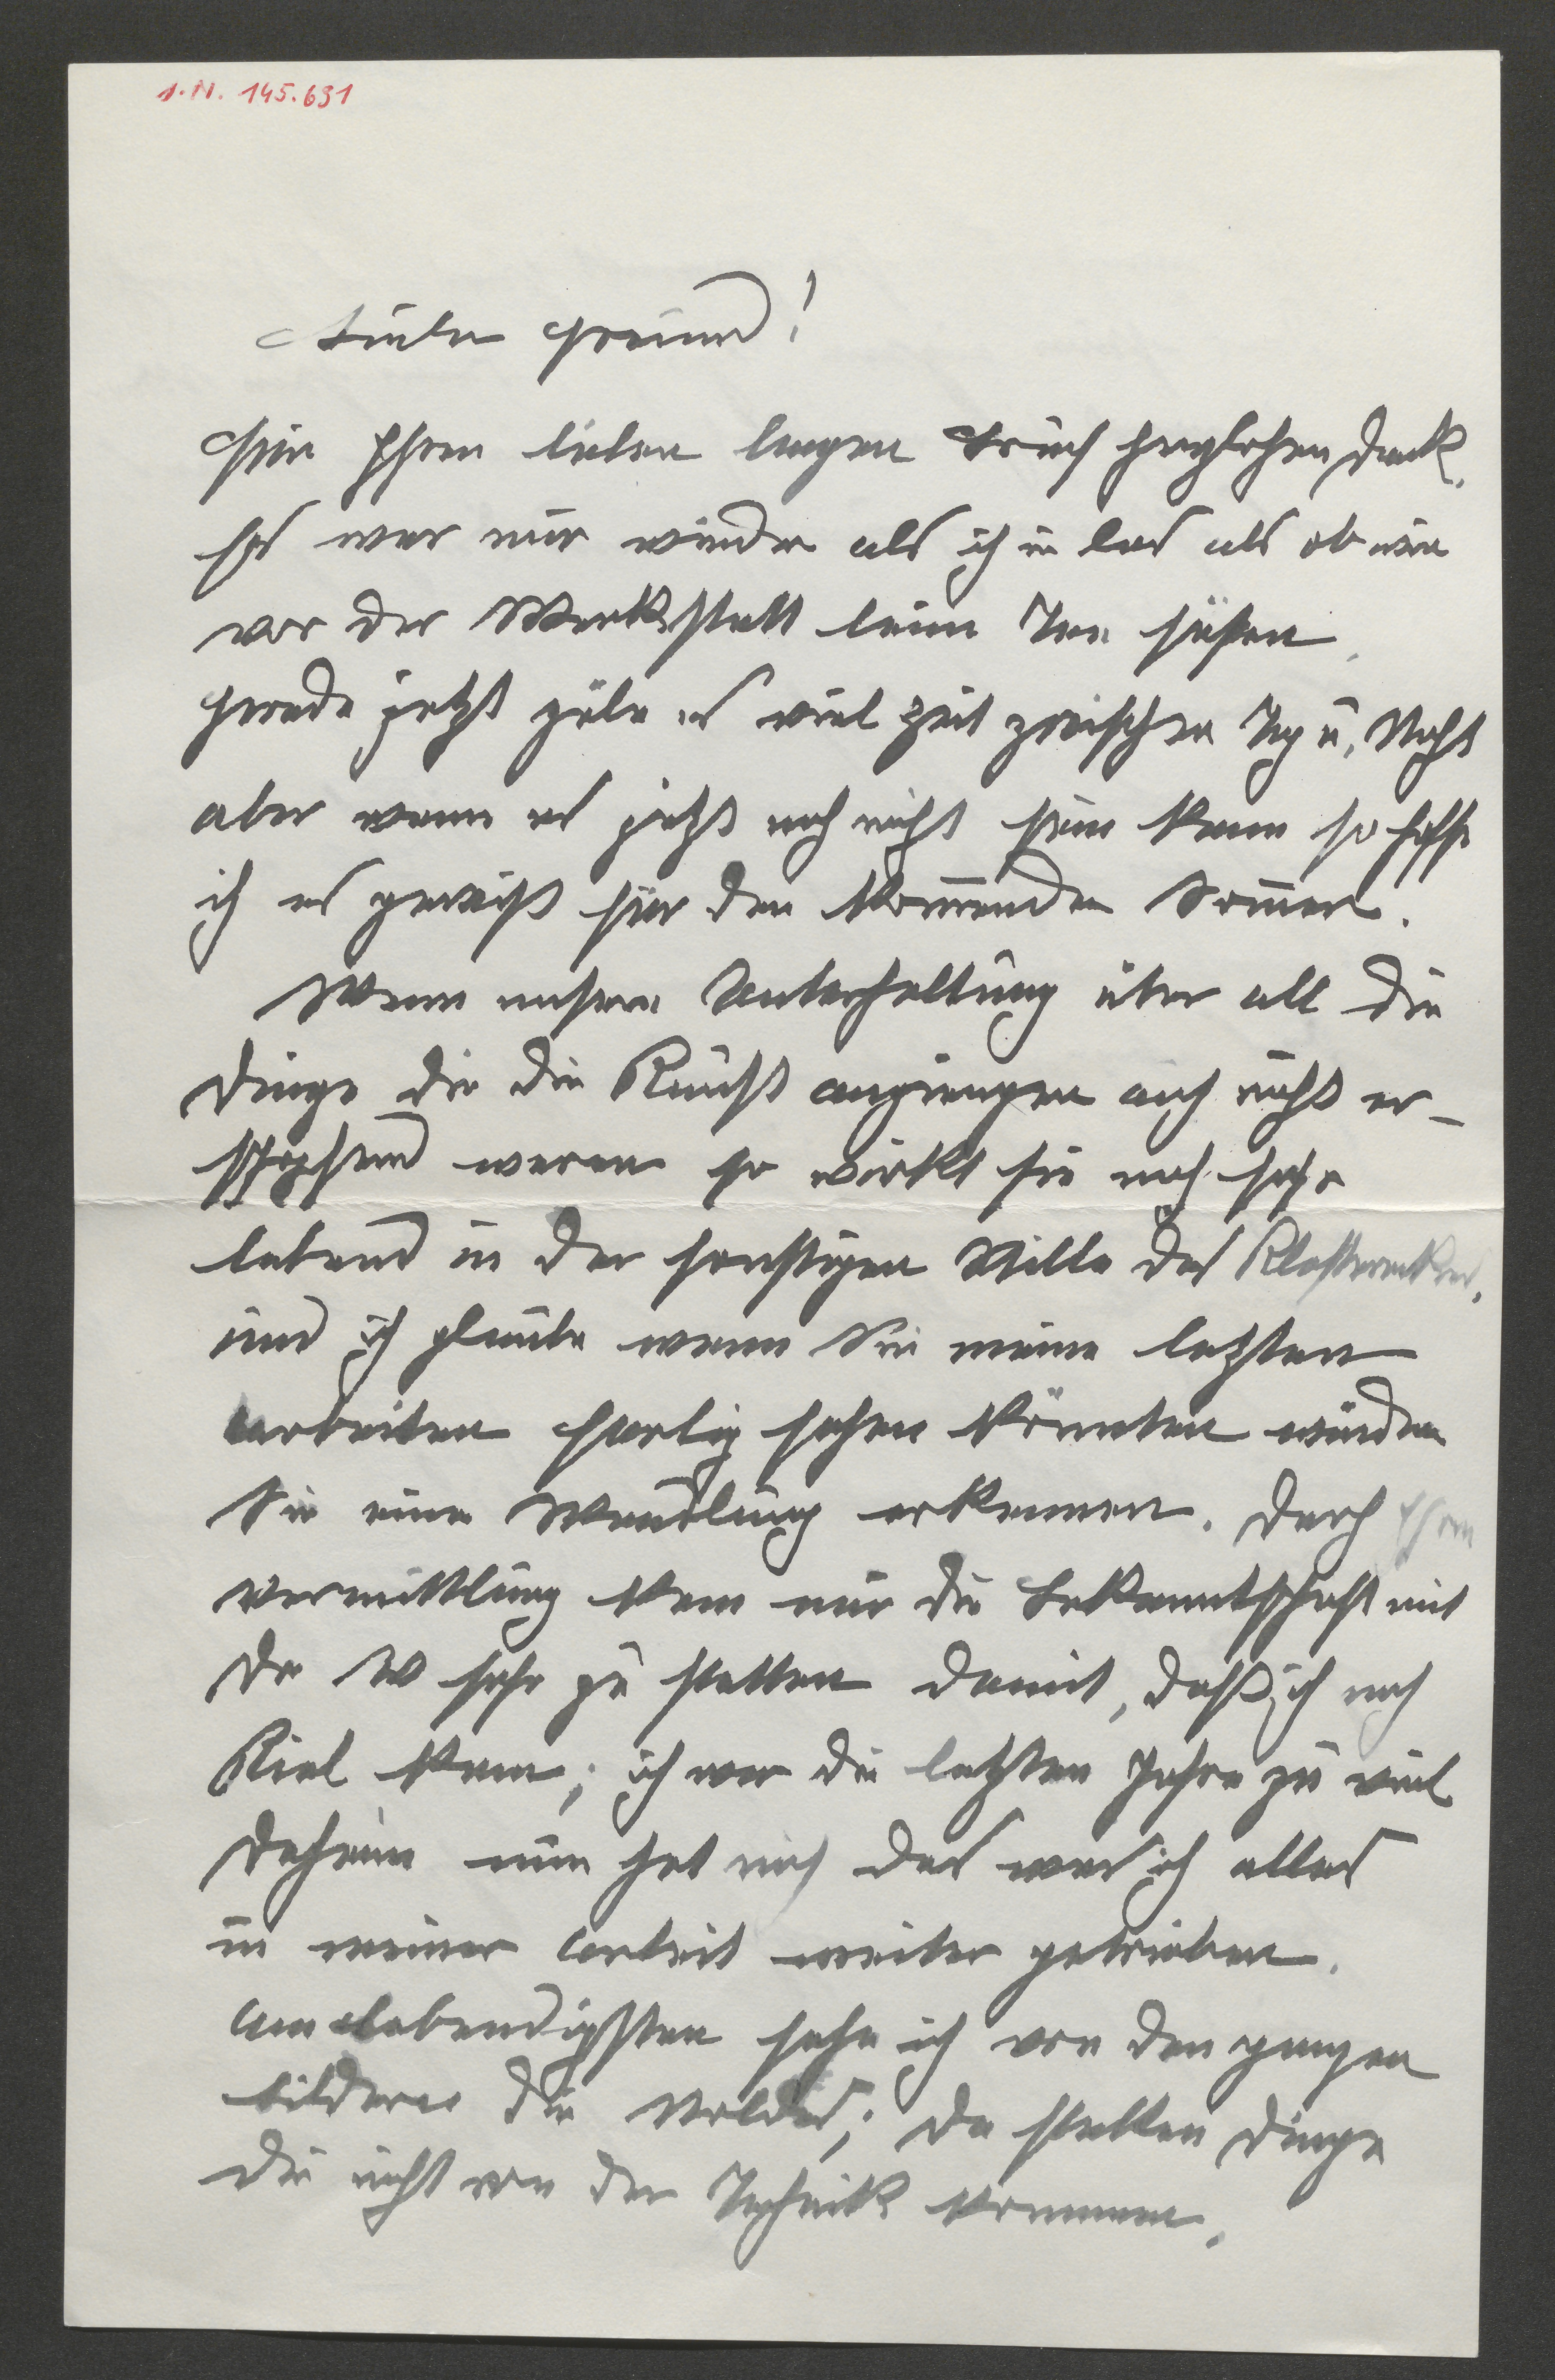 I.N. 145.631
Lieber Freund!
Für Ihren lieben langen Brief herzlichen Dank.
Es war mir wieder als ich in las als ob wir
vor der Werkstatt beim Tee säßen.
Gerade jetzt gäbe es viel Zeit zwischen Tag u. Nacht
aber wenn es jetzt noch nicht sein kann so hoffe
ich es gewiß für den kom̅enden Som̅er.
Wenn unsere Unterhaltung über all die
Dinge die die Kunst angiengen auch nicht er-
schöpfend waren so wirkt sie noch sehr
lebend in der sonstigen Stille des
und ich glaube wenn Sie meine letzten
Arbeiten fertig sehen könnten würden
Sie eine Wandlung erkennen. Durch Ihre
Vermittlung kam mir die Bekanntschaft mit
Dr W sehr zu statten damit, daß ich nach
Kiel kam; ich war die letzten Jahre zu viel
daheim nun hat mich das was ich alles
in meiner Arbeit weiter getrieben.
Am lebendigsten sehe ich von den ganzen
Bildern die Noldes; da stecken Dinge
die nicht von der Technik kommen.